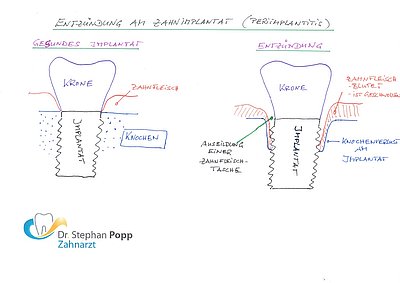 ENTZÜNDUNG AM ZAHNIMPLANTAT (PERIIMPLANTITIS)
GESUNDES IMPLANTAT
KRONE
ZAHNFLEISCH
IMPLANTAT
KNOCHEN
ENTZÜNDUNG
KRONE
ZAHNFLEISCH
- BLUTET
- IST GESCHWOLLEN
IMPLANTAT
AUSBILDUNG
EINER
ZAHNFLEISCH-
TASCHE
KNOCHENVERLUST
AM
IMPLANTAT
Dr. Stephan Popp
Zahnarzt